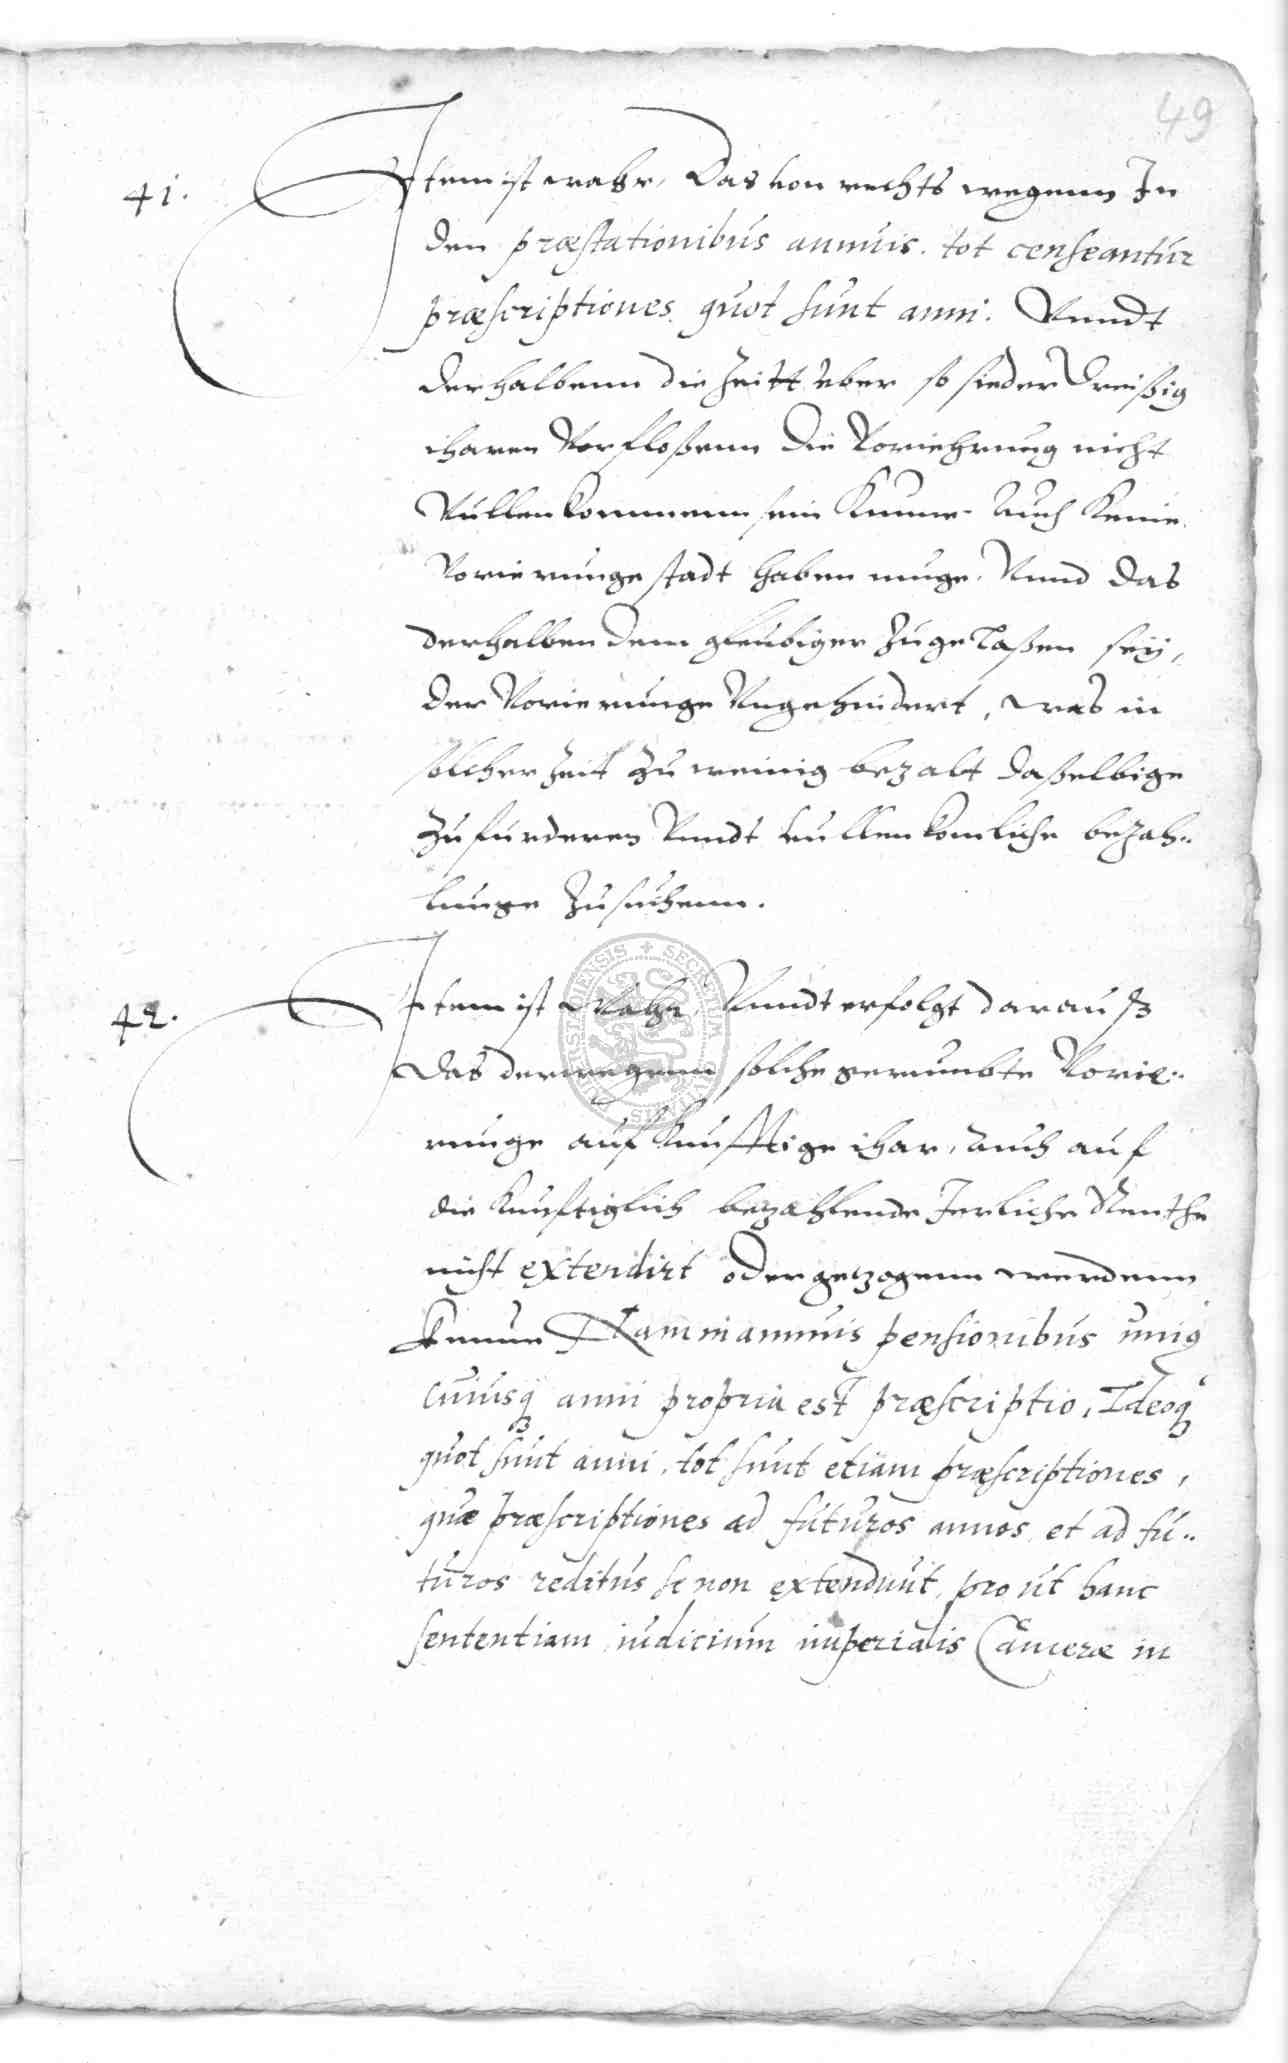 49
41. Item ist wahr, Das von rechts wegenn In
den præstationibus annuis. tot censeantur
præscriptiones quot sunt anni. Vnndt
derhalbenn die Zeitt vber so sieder Dreißig
iharen Vorfloßenn die Voriehrung nicht
Vullenkommenn sein kunne. Auch keine
Vorierunge stadt haben muge. Vnnd das
derhalben dem gleubiger Zugelaßen seÿ,
der Vorierunge Vngehindert, was in
solcher Zeit Zu weinig bezalt daßelbige
Zufurderen Vnndt vullenkomliche bezah¨
lunge Zusuchenn.
42. Item ist Wahr, Vnndt erfolgt darauß
Das derwegenn solche berumbte Vorie¨
runge auf kunfftige ihar, auch auf
die kunftiglich bezahlende Jerliche Renthe
nicht extendirt oder getzogenn werdenn
kunne Nam in annuis pensionibus unius
cuiusq anni propria est præscriptio, Ideoq
quot sunt anni, tot sunt etiam præscriptiones,
quæ præscriptiones ad futuros annos et ad fu¨
turos reditus se non extendunt, pro ut hanc
sententiam iudicium imperialis Cameræ in
SECRETUM CIVITATIS